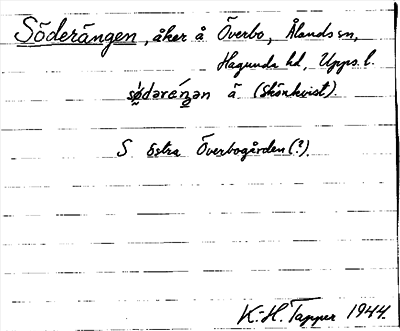 Söderängen, åker å Överbo, Ålands sn,
Hagunda hd, Upps. l.
sø̀dəræŋən ä (Skönkvist).
S östra Överbogården (?).
K.-H. Tapper 1944.